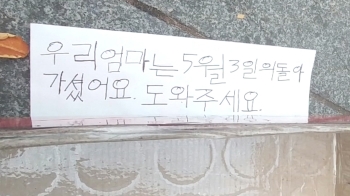 우리엄마는 5월3일의돌아
가셨어요. 도와주세요.